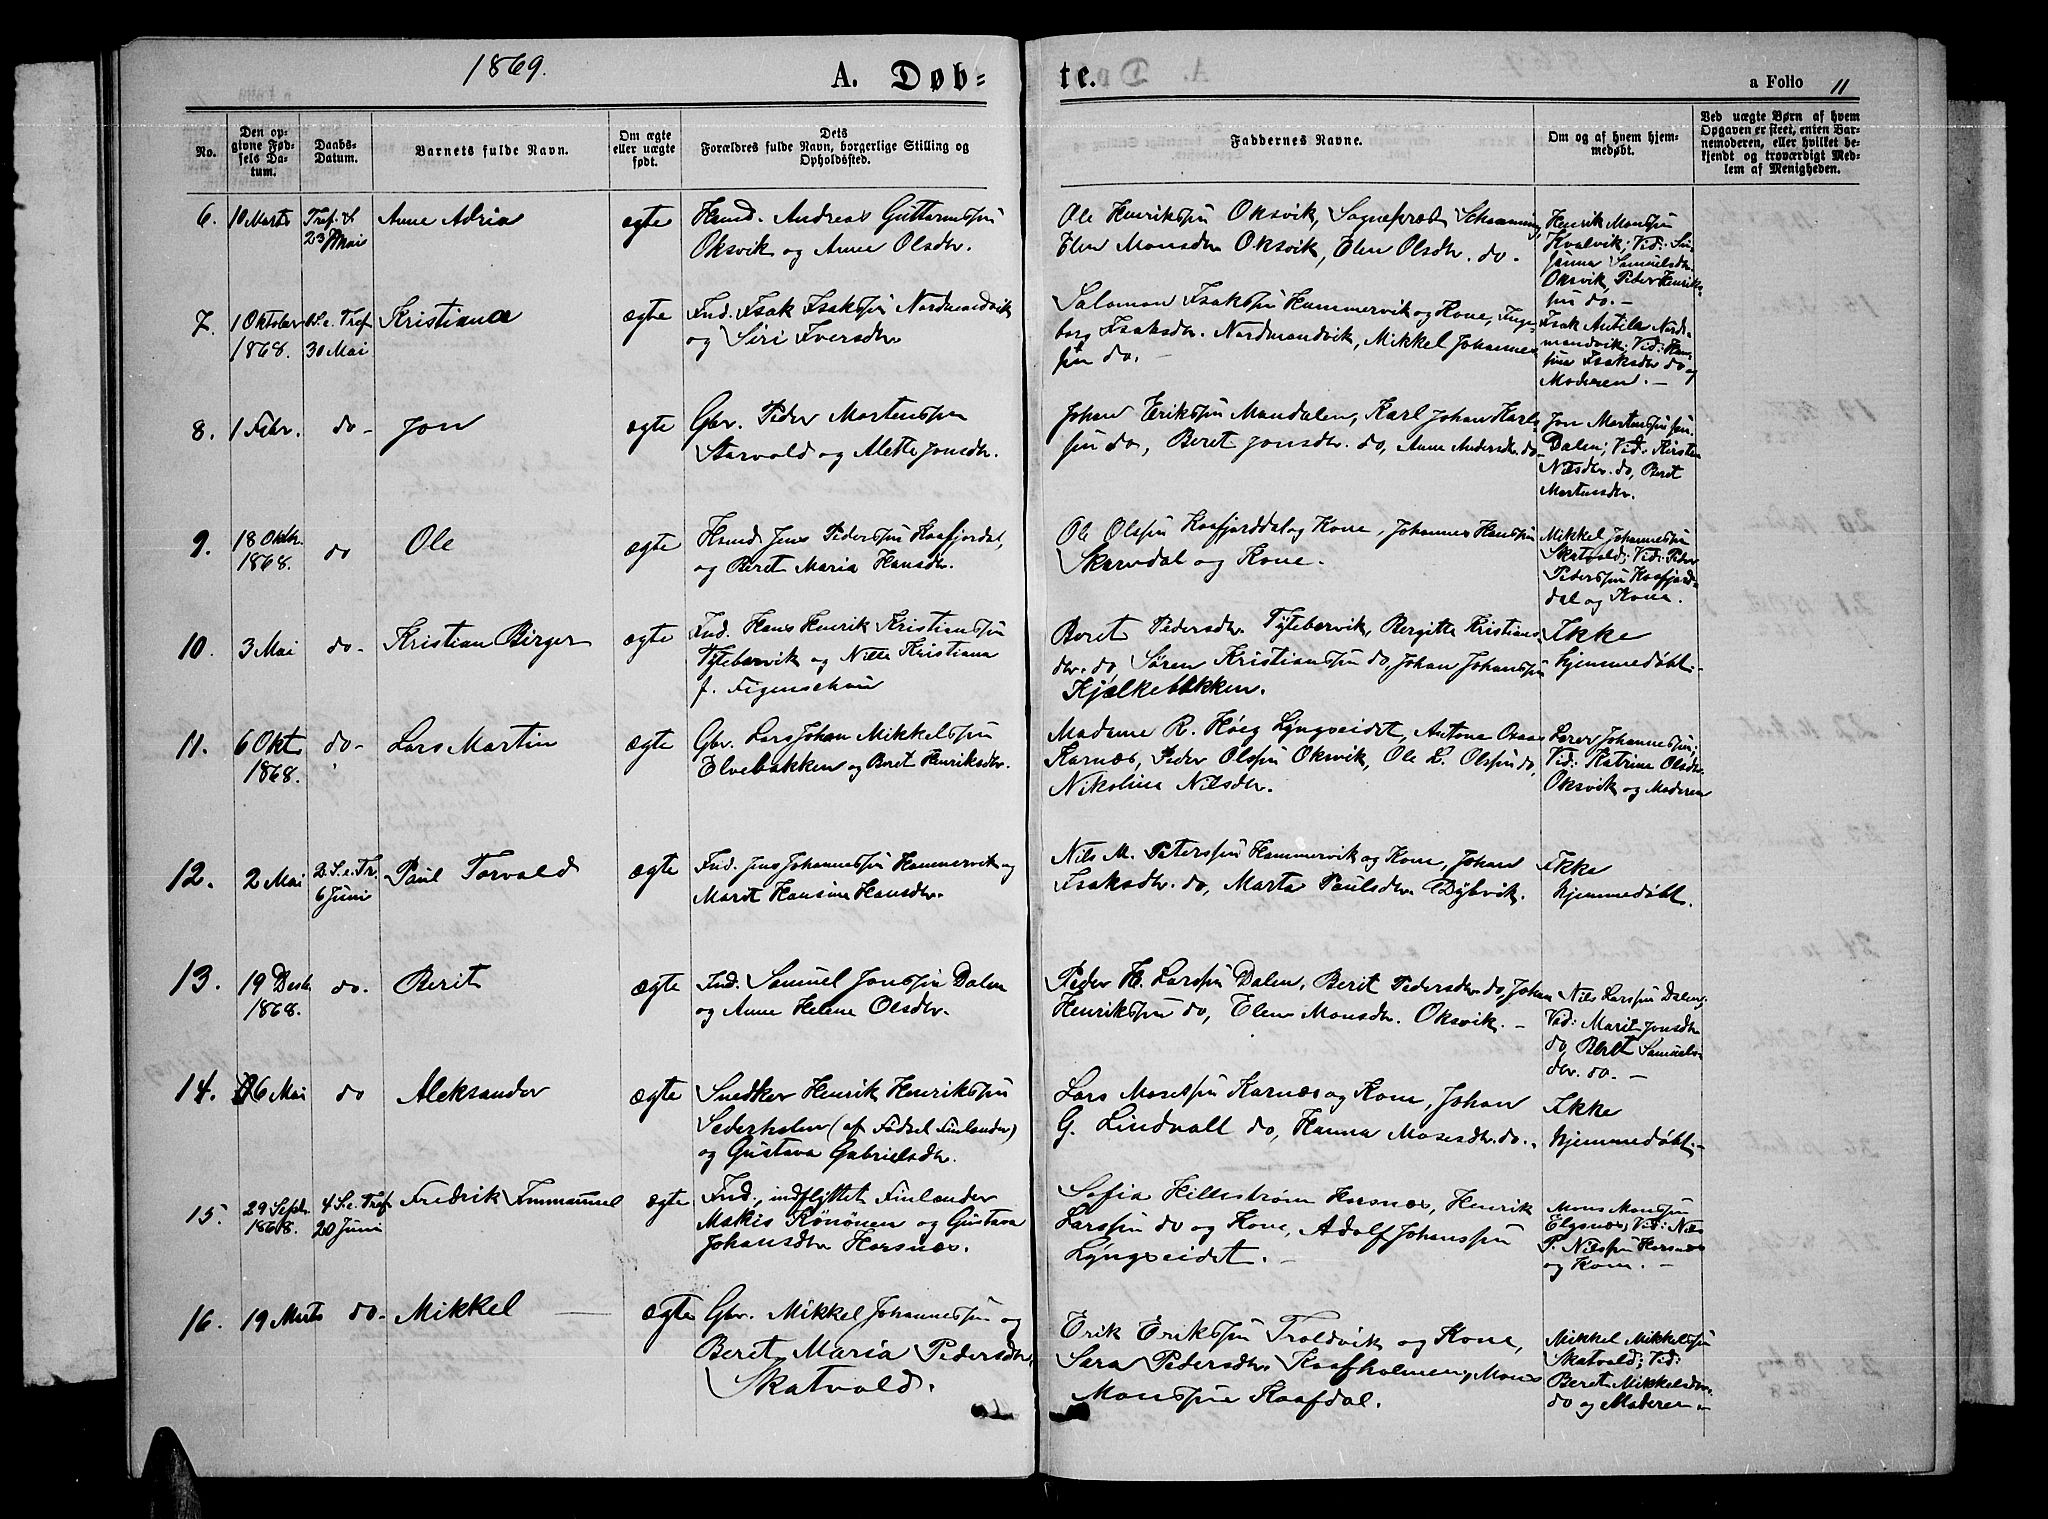 1869.
A. Døb=
te.
a Folio 11
No.
Den op-
givne Fød-
sels Da-
tum.
Daabs-
Datum.
Barnets fulde Navn.
Om ægte
eller uægte
født.
Dets
Forældres fulde Navn, borgerlige Stilling og
Opholdssted.
Faddernes Navne.
Om og af hvem hjem-
medøbt.
Ved uægte Børn af hvem
Opgaven er skeet, enten Bar-
nemoderen, eller hvilket be-
kjendt og troværdigt Med-
lem af Menigheden.
6.
10 Marts
Tref. S.
23 Mai
Anne Adria
ægte
Hmd. Andreas Guttormssøn
Oksvik og Anne Olsdtr.
Ole Henrikssøn Oksvik, Sognepræst
Elen Monsdtr Oksvik, Elen Olsdtr. do.
Henrik Monssøn
Kvalvik; Vid: Su-
sanna Samuelsdtr.
Oksvik, Peder Henriks-
søn do. -
7.
1 Oktober
1868.
1 S. e. Tref.
30 Mai
Kristiana
ægte
Ind. Isak Isakssøn Nordmandvik
og Siri Iversdtr
Salomon Isakssøn Hammervik og Kone, Inge-
borg Isaksdtr. Nordmandvik, Mikkel Johannes-
søn do. -
Isak Antila Nord-
mandvik; Vid: Han-
sine Isaksdtr do og
Moderen. -
8.
1 Febr.
do -
Jon
ægte
Gbr. Peder Mortenssøn
Starvold og Alette Jonsdtr.
Johan Erikssøn Mandalen, Karl Johan Karls-
søn do, Beret Jonsdtr. do, Anne Andersdtr. do -
Jon Mortenssøn
Dalen; Vid: Kirsten
Nilsdtr. do, Beret
Mortensdtr.
9.
18 Oktbr.
1868.
do
Ole
ægte
Hmd Jens Pederssøn Kaafjordal,
og Beret Maria Hansdtr.
Ole Olssøn Kaafjorddal og Kone, Johannes Hanssøn
Skarvdal og Kone.
Mikkel Johannessøn
Skatvold; Vid: Peder
Pederssøn Kaafjord-
dal og Kone.
10.
3 Mai
do -
Kristian Birger
ægte
Ind. Hans Henrik Kristianssøn
Tytebærvik og Nille Kristiana
f. Figenschau
Beret Pedersdtr. Tytebærvik, Bergitte Kristians-
dtr. do, Søren Kristianssøn do, Johan Johanssøn
Kjølkebakken.
Ikke
hjemmedøbt. -
11.
6 Okt
1868.
do -
Lars Martin
ægte
Gbr. Lars Johan Mikkelssøn
Elvebakken og Beret Henriksdtr.
Madame R. Høeg Lyngseidet, Antone Oxaas
Karnæs, Peder Olssøn Oksvik, Ole L. Olssøn do,
Nikoline Nilsdtr.
Johannessøn;
Vid: Katrine Olsdtr.
Oksvik og Moderen
12.
2 Mai
2 S. e. Tr.
6 Juni
Paul Torvald
ægte
Ind. Jens Johannessøn Hammervik og
Marit Hansine Hansdtr.
Nils M. Peterssøn Hammervik og Kone, Johan
Isaksdtr. do, Marta Paulsdtr Dybvik.
Ikke
hjemmedøbt.
13.
19 Decbr
1868.
do.
Berit
ægte
Ind. Samuel Jonssøn Dalen
og Anne Helene Olsdtr.
Peder H. Larssøn Dalen, Berit Pedersdtr. do, Johan
Henrikssøn do, Elen Monsdtr. Oksvik. -
Nils Larssøn Dalen;
Vid: Marit Jonsdtr
do, Beret Samuels-
dtr. do. -
14.
6 Mai
do
Aleksander
ægte
Snedker Henrik Henrikssøn
Sederholm (af Fødsel Finlænder)
og Gustava Gabrielsdtr.
Lars Mosessøn Karnæs og Kone, Johan
G. Lindvall do, Hanna Mosesdtr. do.
Ikke
hjemmedøbt. -
15.
29 Septr
1868.
4 S. e. Tref.
20 Juni
Fredrik Immanuel
ægte
Ind., indflyttet Finlænder
Makis Rönönen og Gustava
Johansdtr Horsnæs.
Sofia Hellestrøm Horsnæs, Henrik
Larssøn do og Kone, Adolf Johanssøn
Lyngseidet. -
Mons Monssøn
Elgsnæs; Vid: Nils
P. Nilssøn Horsnæs
og Kone. -
16.
19 Marts
do -
Mikkel
ægte
Gbr. Mikkel Johannessøn og
Beret Maria Pedersdtr.
Skatvold.
Erik Erikssøn Troldvik og Kone,
Sara Pedersdtr. Kaafholmen, Mons
Monssøn Kaafdal.
Mikkel Mikkelssøn
Skatvold; Vid:
Beret Mikkelsdtr.
do og Moderen. -